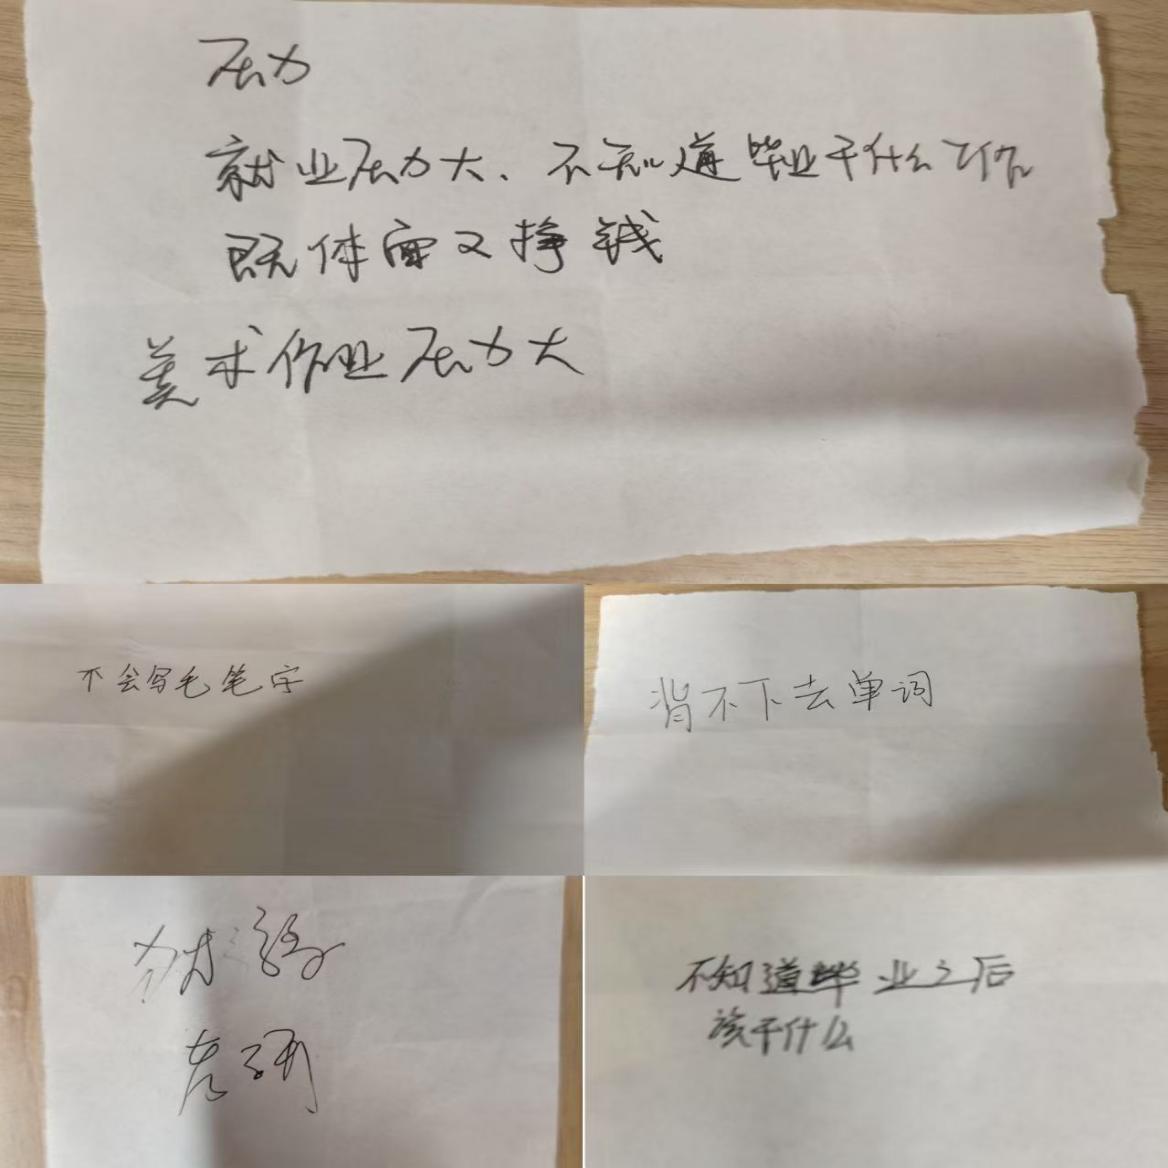 压力
就业压力大、不知道毕业干什么工作
既体面又挣钱
美术作业压力大
不会写毛笔字
背不下去单词
考研
不知道毕业之后
该干什么